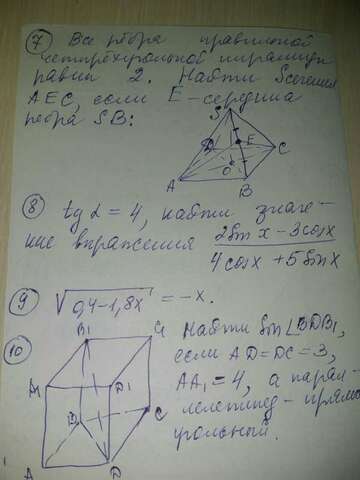 7 Все рёбра правильной
четырёхугольной пирамиды
равны 2. Найти Sсечения
AEC, если E-середина
ребра SB:
S
E
C
O
A
B
8 tg α = 4, найти значе-
ние выражения 2sin x - 3cos x
4cos x + 5sin x
9 √0,4-1,8x = -x.
10 B1 C1 Найти sin∠BDB1,
если AD=DC=3,
A1 D1 AA1=4, а парал-
B C лелепипед - прямо-
угольный.
A D